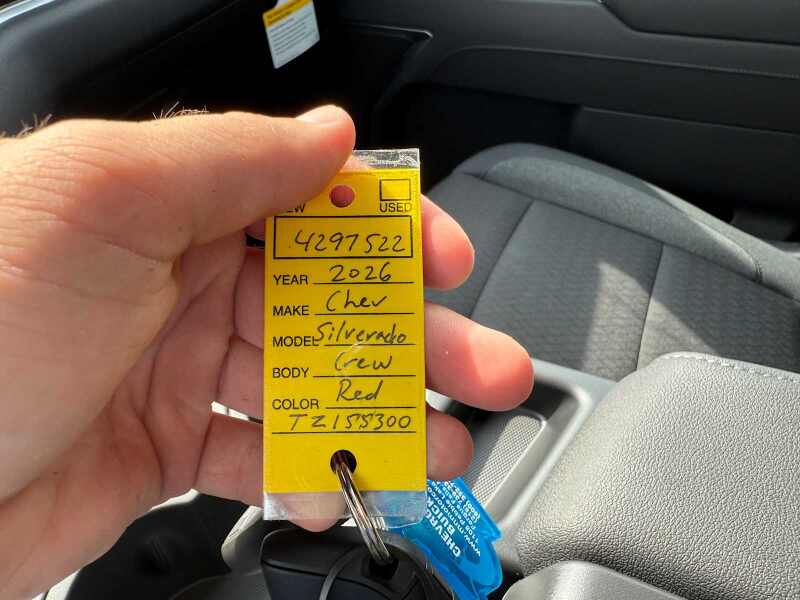 USED
4297522
YEAR 2026
MAKE Chev
MODEL Silverado
BODY Crew
COLOR Red
TZ155300
CHEVRO
BUICK